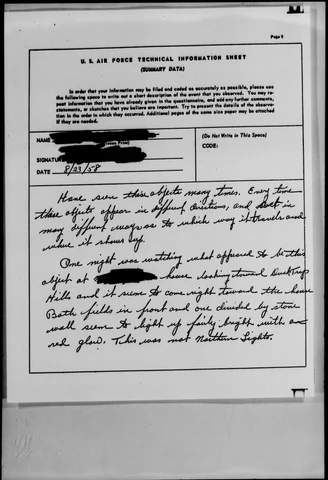 Page 5
U. S. AIR FORCE TECHNICAL INFORMATION SHEET
(SUMMARY DATA)
In order that your information may be filed and coded as accurately as possible, please use
the following space to write out a short description of the event that you observed. You may re-
peat information that you have already given in the questionnaire, and add any further comments,
statements, or sketches that you believe are important. Try to present the details of the observa-
tion in the order in which they occurred. Additional pages of the same size paper may be attached
if they are needed.
NAME
(Please Print)
SIGNATURE
DATE 8/23/58
(Do Not Write in This Space)
CODE:
Have seen these objects many times. Every time
these objects appear in different directions, and
many different ways as to which way it travels and
where it shows up.
One night was watching what appeared to be this
object at house looking toward Ducktrap
Hills and it seem to come right toward the house
Both fields in front and one divided by stone
wall seem to light up fairly bright with a
red glow. This was not Northern Lights.